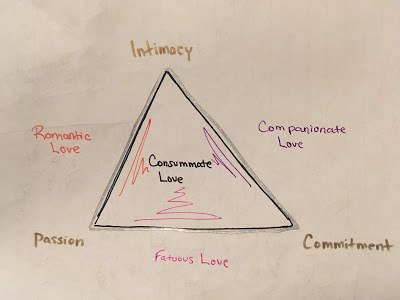 Intimacy
Romantic
Love
Companionate
Love
Consummate
Love
Passion
Commitment
Fatuous Love